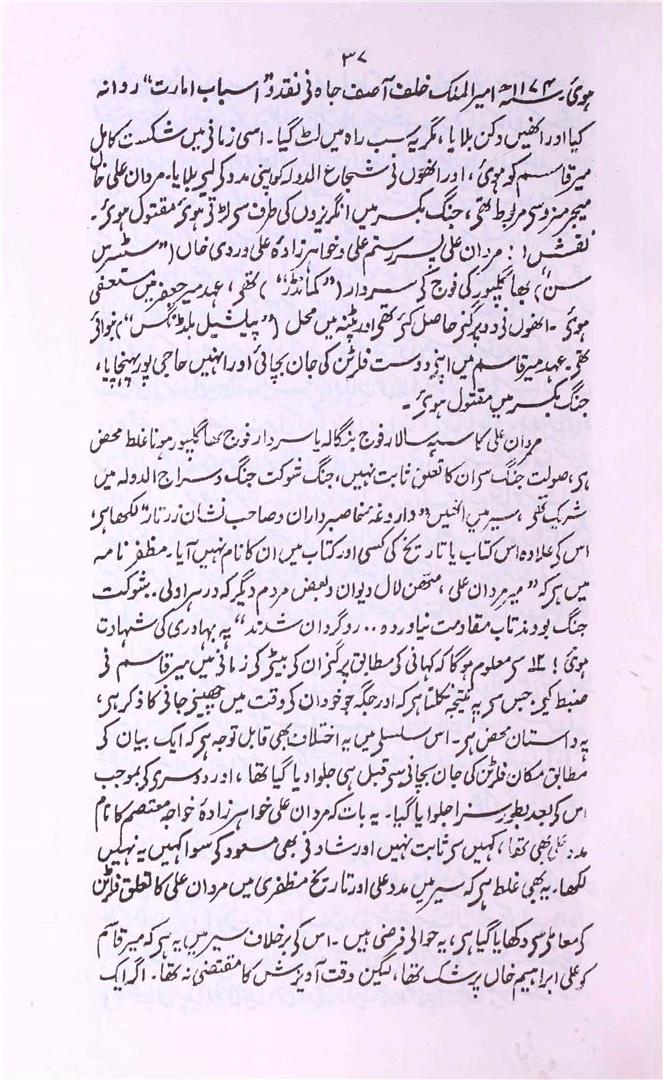 ۳۷
ہوئی۔ سنہ ۱۱۷۴ھ امیر الملک خلف آصف جاہ نی نقد و "اسباب امارت" روانہ
کیا اور انھیں دکن بلایا، مگر یہ سب راہ میں لٹ گیا۔ اسی زمانی میں شکست کامل
میر قاسم کو ہوئی، اور انھوں نی شجاع الدولہ کو اپنی مدد کی لیی بلایا۔ مردان علی خاں
میجر منرو سی مربوط تھی، جنگ بکسر میں انگریزوں کی طرف سی لڑتی ہوئی مقتول ہوئی۔
نقش ا: مردان علی پسر رستم علی و خواہر زادۂ علی وردی خاں ("سٹرس
سن) بھاگلپور کی فوج کی سردار ("کمانڈر") تھی، عہد میر جعفر میں مستعفی
ہوئی۔ انھوں نی دو پرگنی حاصل کئی تھی اور پٹنہ میں محل ("پیلیشیل بلڈنگس") بنوائی
تھی۔ عہد میر قاسم میں اپنی دوست فلرٹن کی جان بچائی اور انہیں حاجی پور پہنچایا،
جنگ بکسر میں مقتول ہوئی۔
مردان علی کا سپہ سالار فوج بنگالہ یا سردار فوج بھاگلپور ہونا غلط محض
ہی، صولت جنگ سی ان کا تعلق ثابت نہیں، جنگ شوکت جنگ و سراج الدولہ میں
شریک تھی، سیر میں انھیں "داروغہ منصبداران و صاحب نشان زرتار" لکھا ہی،
اس کی علاوہ اس کتاب یا تاریخ کی کسی اور کتاب میں ان کا نام نہیں آیا۔ مظفر نامہ
میں ہی کہ "میر مردان علی، متھن لال دیوان و بعض مردم دیگر کہ در ہراولی۔ شوکت
جنگ بودند تاب مقاومت نیاوردہ .. روگردان شدند" یہ بہادری کی شہادت
ہوئی! سی معلوم ہوگا کہ کہانی کی مطابق پرگنی ان کی بیٹی کی زمانی میں میر قاسم نی
ضبط کیی جس سی یہ نتیجہ نکلتا ہی کہ اور جگہ جو خود ان کی وقت میں چھینی جانی کا ذکر ہی،
یہ داستان محض ہی۔ اس سلسلی میں یہ اختلاف بھی قابل توجہ ہی کہ ایک بیان کی
مطابق مکان فلرٹن کی جان بچانی سی قبل ہی جلوا دیا گیا تھا، اور دوسری کی بموجب
اس کی بعد بطور سزا جلوایا گیا۔ یہ بات کہ مردان علی خواہر زادۂ خواجہ معتصم کا نام
مدد علی بھی تھا، کہیں سی ثابت نہیں اور شاد نی بھی مسعود کی سوا کہیں یہ نہیں
لکھا۔ یہ بھی غلط ہی کہ سیر میں مدد علی اور تاریخ مظفری میں مردان علی کا تعلق فلرٹن
کی معاملی سی دکھایا گیا ہی، یہ حوالی فرضی ہیں۔ اس کی برخلاف سیر میں یہ ہی کہ میر قاسم
کو علی ابراہیم خاں پر شک تھا، لیکن وقت آویزش کا مقتضی نہ تھا۔ اگر ایک